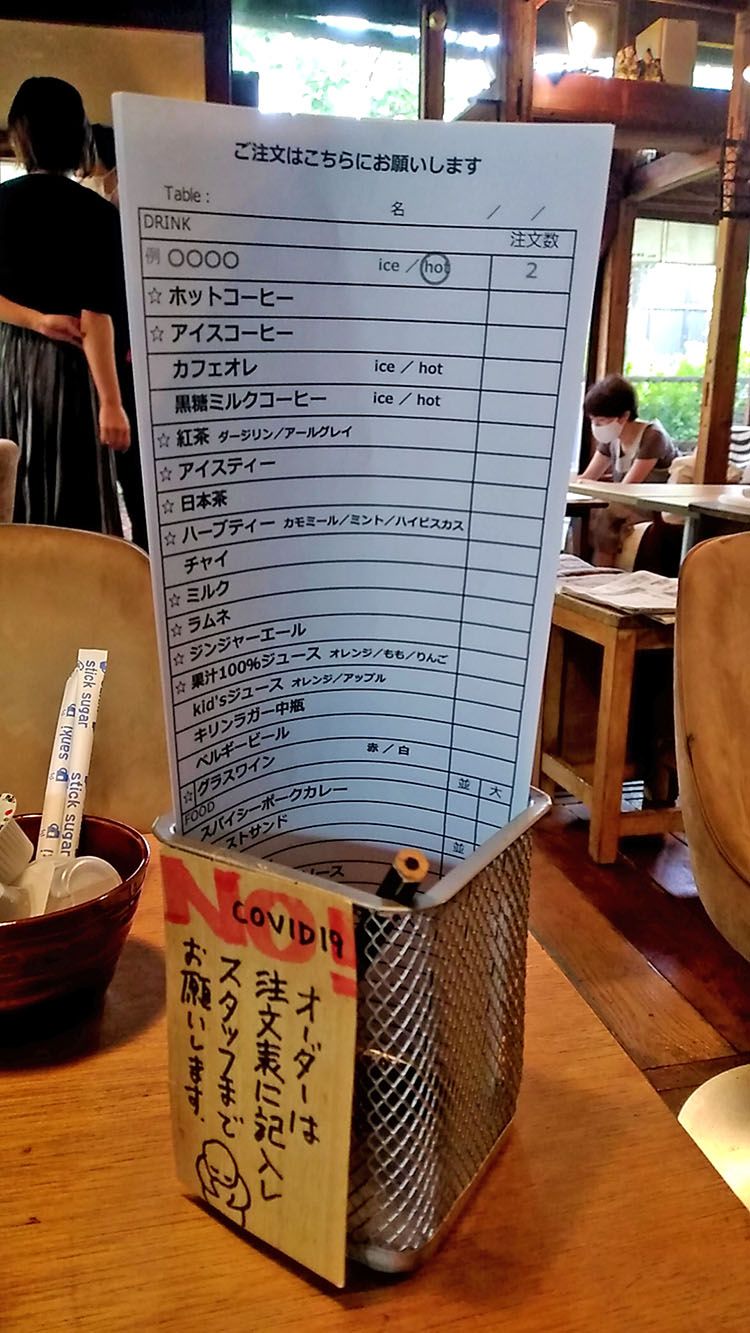 ご注文はこちらにお願いします
Table : 名 / /
DRINK 注文数
例 〇〇〇〇 ice / hot 2
☆ ホットコーヒー
☆ アイスコーヒー
カフェオレ ice / hot
黒糖ミルクコーヒー ice / hot
☆ 紅茶 ダージリン/アールグレイ
☆ アイスティー
☆ 日本茶
☆ ハーブティー カモミール/ミント/ハイビスカス
チャイ
☆ ミルク
☆ ラムネ
☆ ジンジャーエール
☆ 果汁100%ジュース オレンジ/もも/りんご
kid'sジュース オレンジ/アップル
キリンラガー中瓶
ベルギービール
☆ グラスワイン 赤 / 白
FOOD 並 大
スパイシーポークカレー
ストサンド 並
ース
NO!
COVID19
オーダーは
注文表に記入し
スタッフまで
お願いします.
stick sugar
sanki
stick sugar